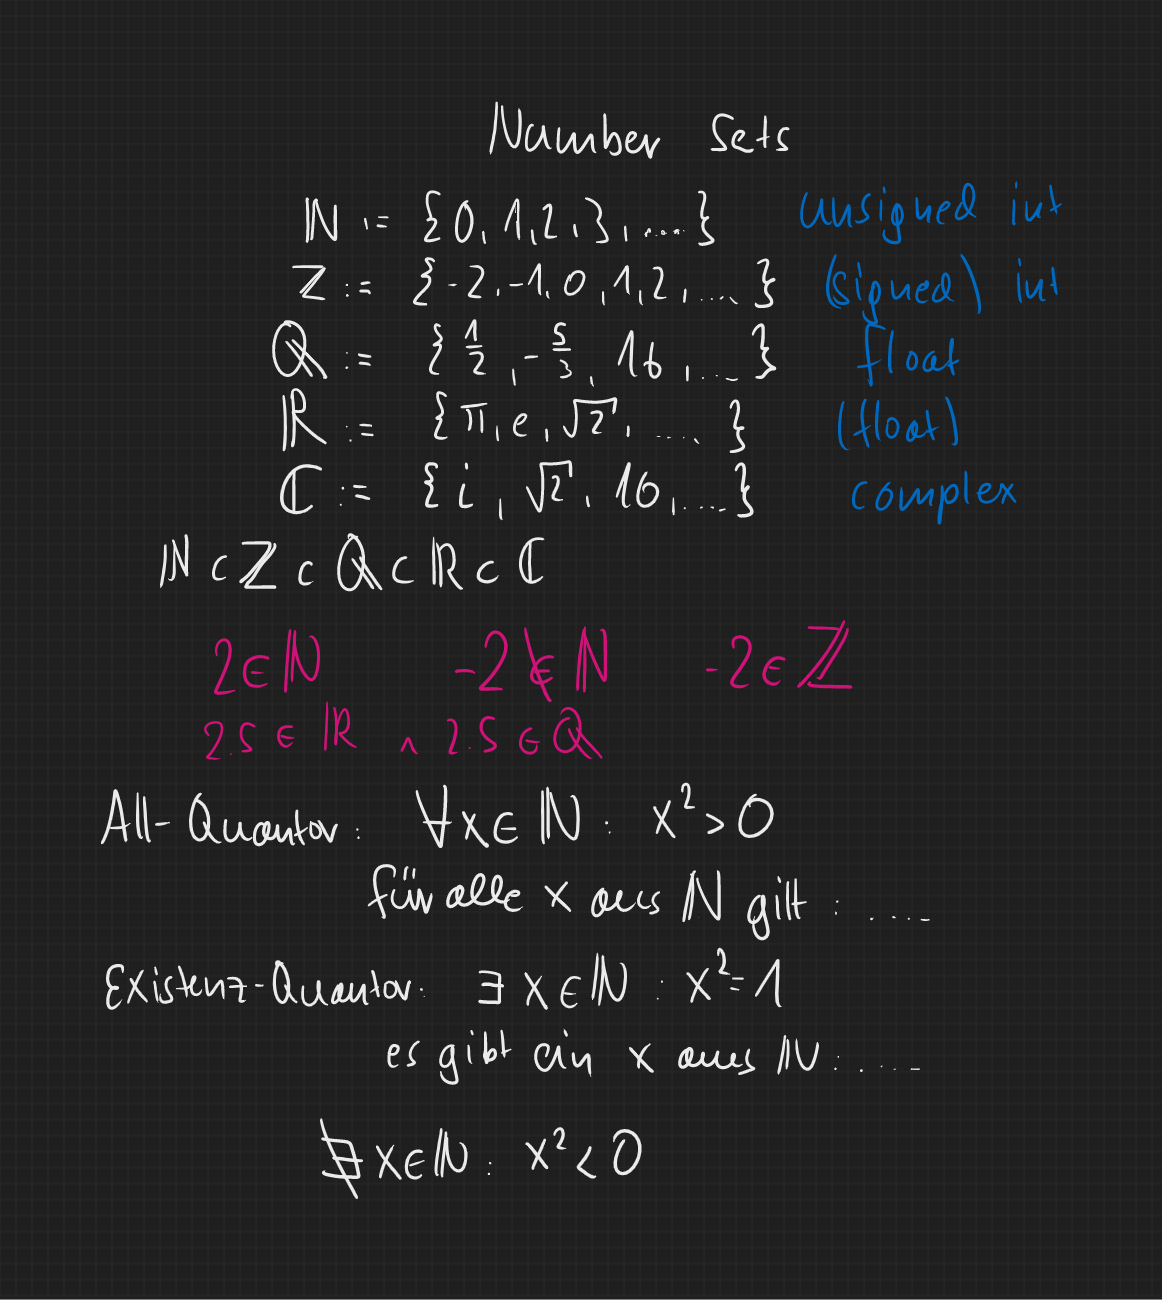 Number Sets
ℕ := {0, 1, 2, 3, ....} unsigned int
ℤ := {-2, -1, 0, 1, 2, ....} (signed) int
ℚ := {1/2, -5/3, 16, ....} float
ℝ := {π, e, √2, ....} (float)
ℂ := {i, √2, 16, ....} complex
ℕ ⊂ ℤ ⊂ ℚ ⊂ ℝ ⊂ ℂ
2 ∈ ℕ -2 ∉ ℕ -2 ∈ ℤ
2.5 ∈ ℝ ∧ 2.5 ∈ ℚ
All-Quantor: ∀x ∈ ℕ : x² > 0
für alle x aus ℕ gilt : ....
Existenz-Quantor: ∃ x ∈ ℕ : x² = 1
es gibt ein x aus ℕ : ....
∄ x ∈ ℕ : x² < 0